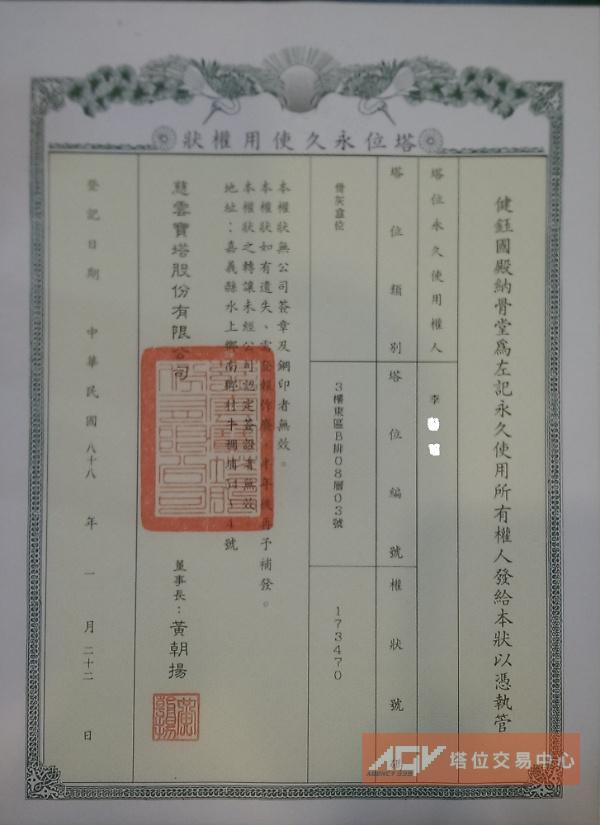 狀權用使久永位塔
健鈺國殿納骨堂為左記永久使用所有權人發給本狀以憑執管
塔位永久使用權人
李
塔位類別
塔位編號
權狀號
骨灰盒位
3樓東區B排08層03號
173470
本權狀無公司簽章及鋼印者無效。
本權狀如有遺失、需登報作廢,半年後再予補發。
本權狀之轉讓未經公司認定簽證者無效。
地址:嘉義縣水上鄉南鄉村牛稠埔
號
慈雲寶塔股份有限公司
董事長:黃朝揚
登記日期 中華民國八十八年一月二十二日
AGV 塔位交易中心